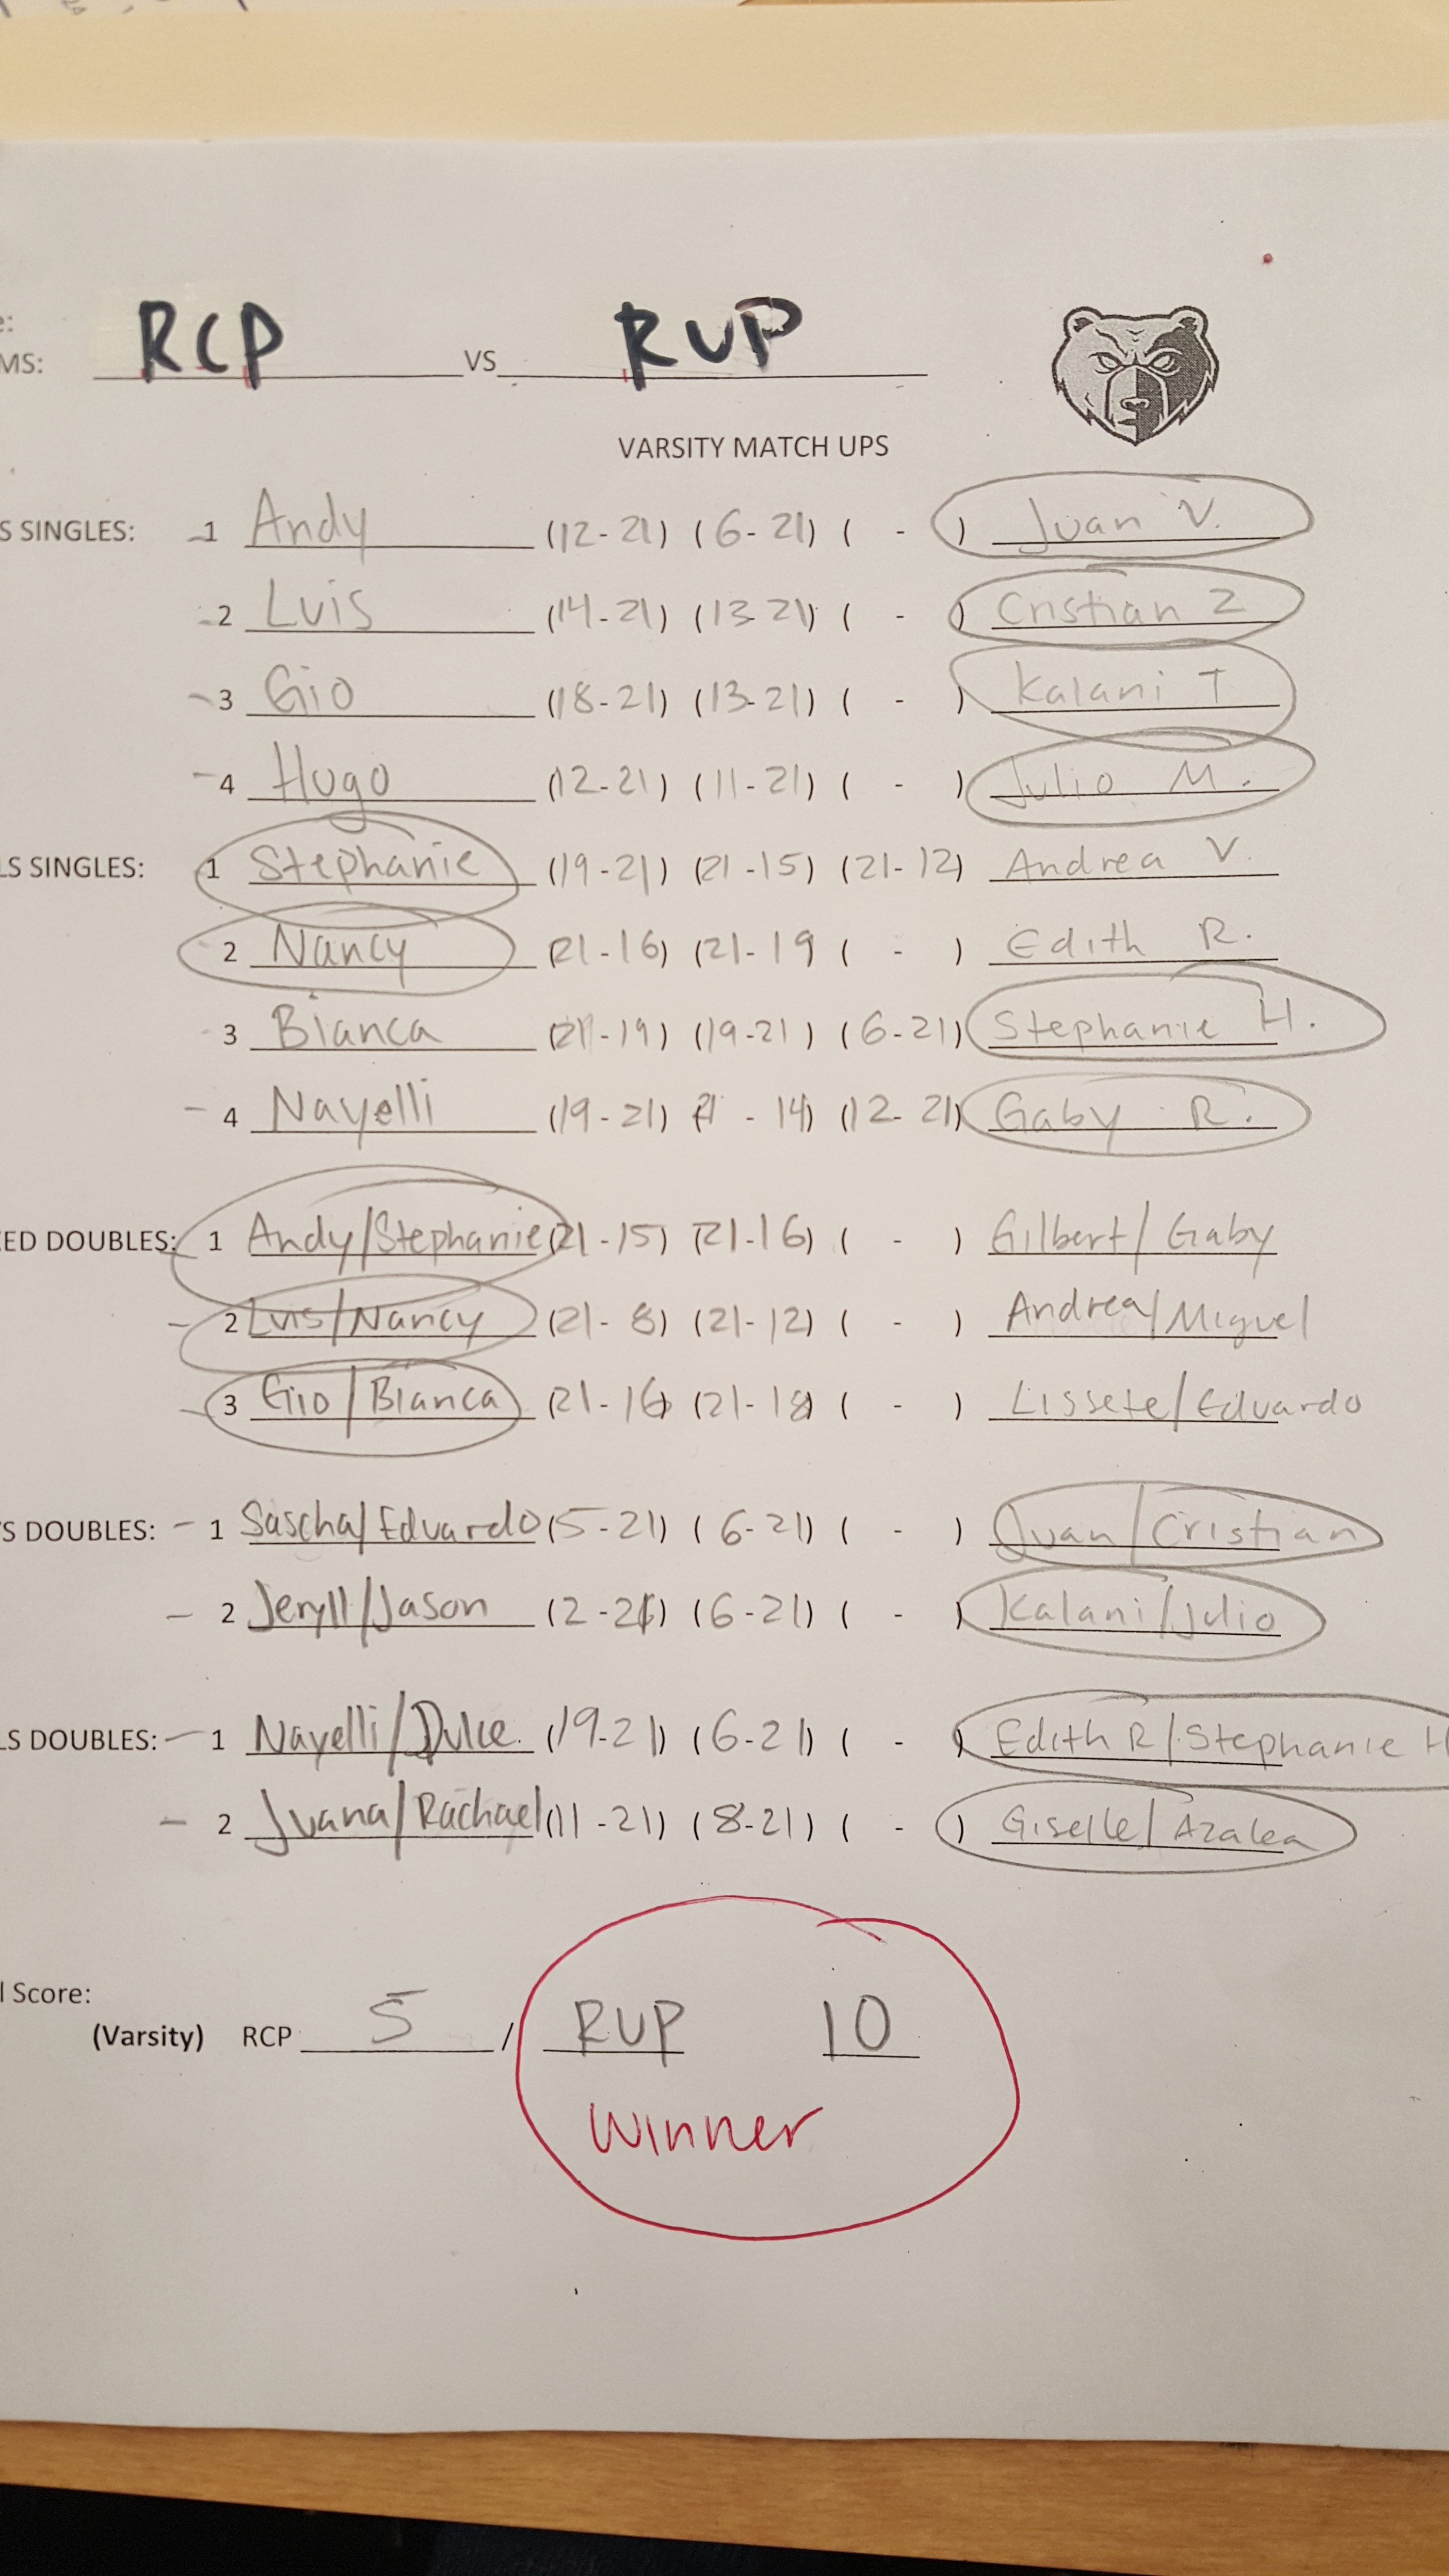 e:
MS: RCP VS RUP
VARSITY MATCH UPS
S SINGLES: 1 Andy (12-21) (6-21) ( - ) Juan V.
2 Luis (14-21) (13-21) ( - ) Cristian Z
3 Gio (18-21) (13-21) ( - ) Kalani T
4 Hugo (12-21) (11-21) ( - ) Julio M.
LS SINGLES: 1 Stephanie (19-21) (21-15) (21-12) Andrea V.
2 Nancy (21-16) (21-19 ( - ) Edith R.
3 Bianca (21-19) (19-21) (6-21) Stephanie H.
4 Nayelli (19-21) (21-14) (12-21) Gaby R.
ED DOUBLES: 1 Andy/Stephanie (21-15) (21-16) ( - ) Gilbert/Gaby
2 Luis/Nancy (21-8) (21-12) ( - ) Andrea/Miguel
3 Gio/Bianca (21-16) (21-18) ( - ) Lissete/Eduardo
'S DOUBLES: 1 Sascha/Eduardo (5-21) (6-21) ( - ) Juan/Cristian
2 Jeryll/Jason (2-21) (6-21) ( - ) Kalani/Julio
LS DOUBLES: 1 Nayelli/Dulce (19-21) (6-21) ( - ) Edith R/Stephanie H
2 Juana/Rachael (11-21) (8-21) ( - ) Giselle/Azalea
l Score:
(Varsity) RCP 5 / RUP 10
Winner